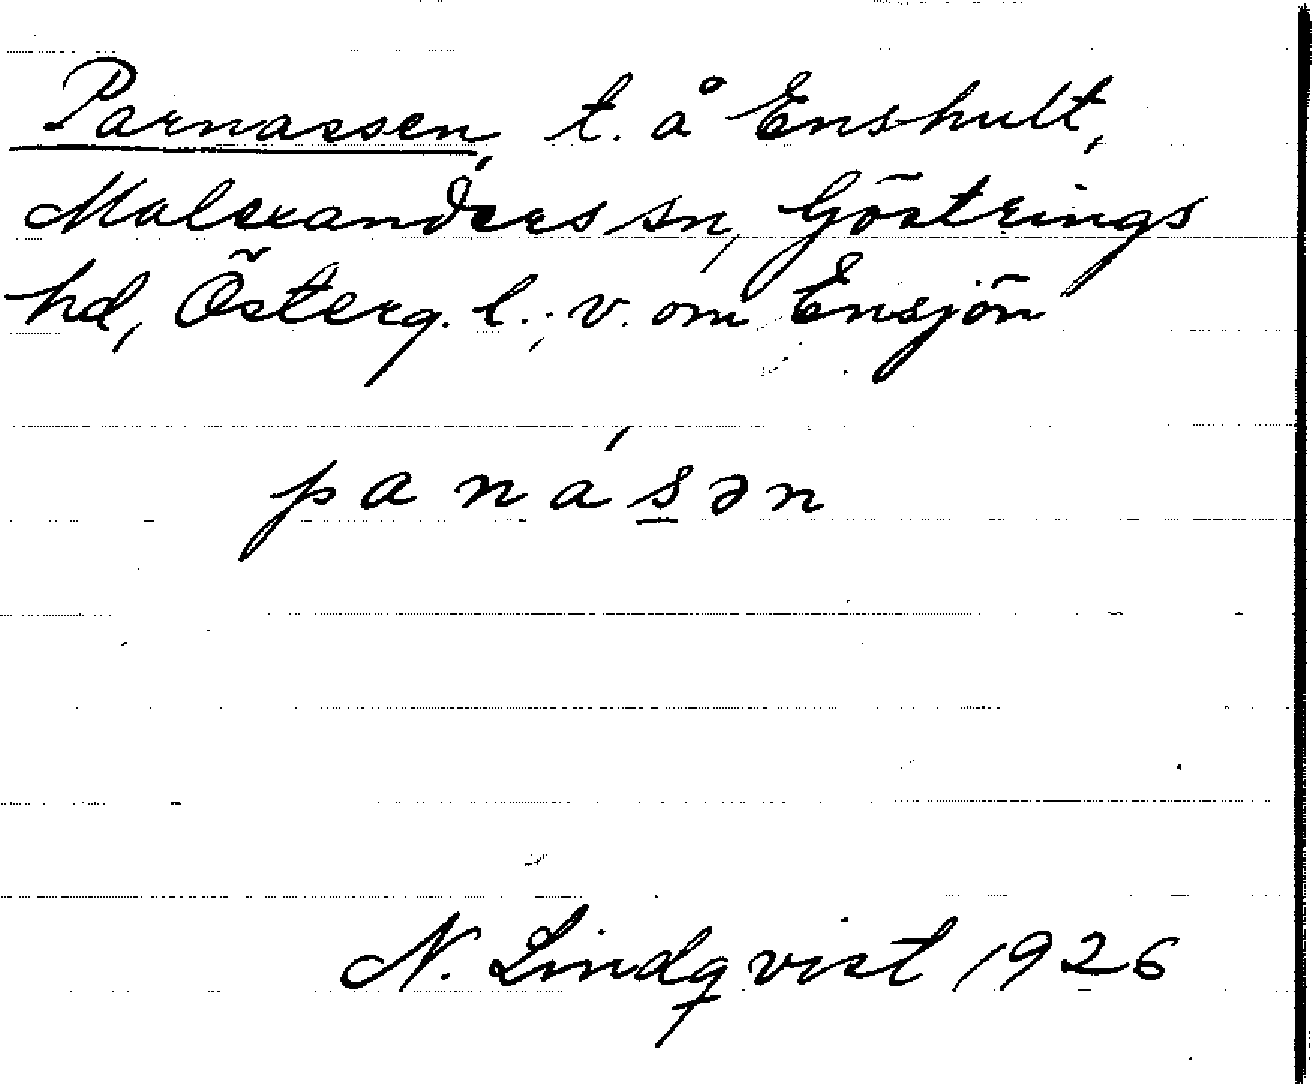 Parnassen, t. å Enshult,
Malexanders sn, Göstrings
hd, Österg. l.; v. om Ensjön
panásən
N. Lindqvist 1926